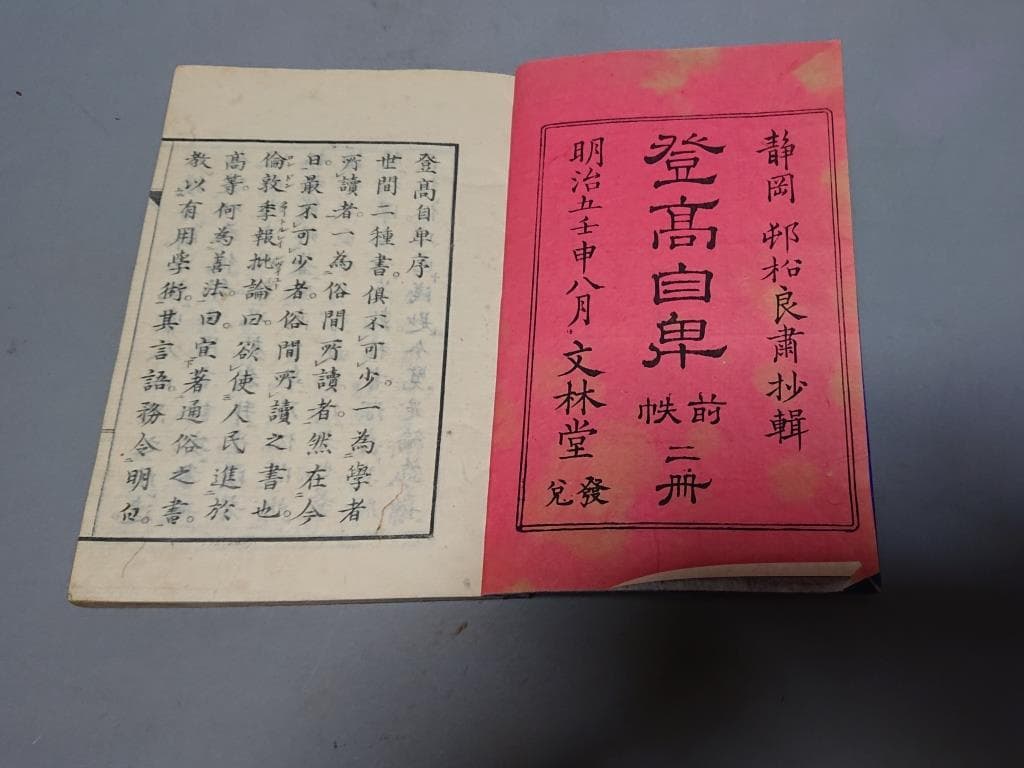 静岡 邨松良肅抄輯
登髙自卑 前帙二冊
明治五壬申八月 文林堂發兌
登髙自卑序
世間二種書。俱不可少。一為學者
所讀者。一為俗間所讀者。然在今
日。最不可少者。俗間所讀之書也。
倫敦季報批論曰。欲使人民進於
高等。何為善法。曰。宜著通俗之書。
教以有用學術。其言語。務令明白。